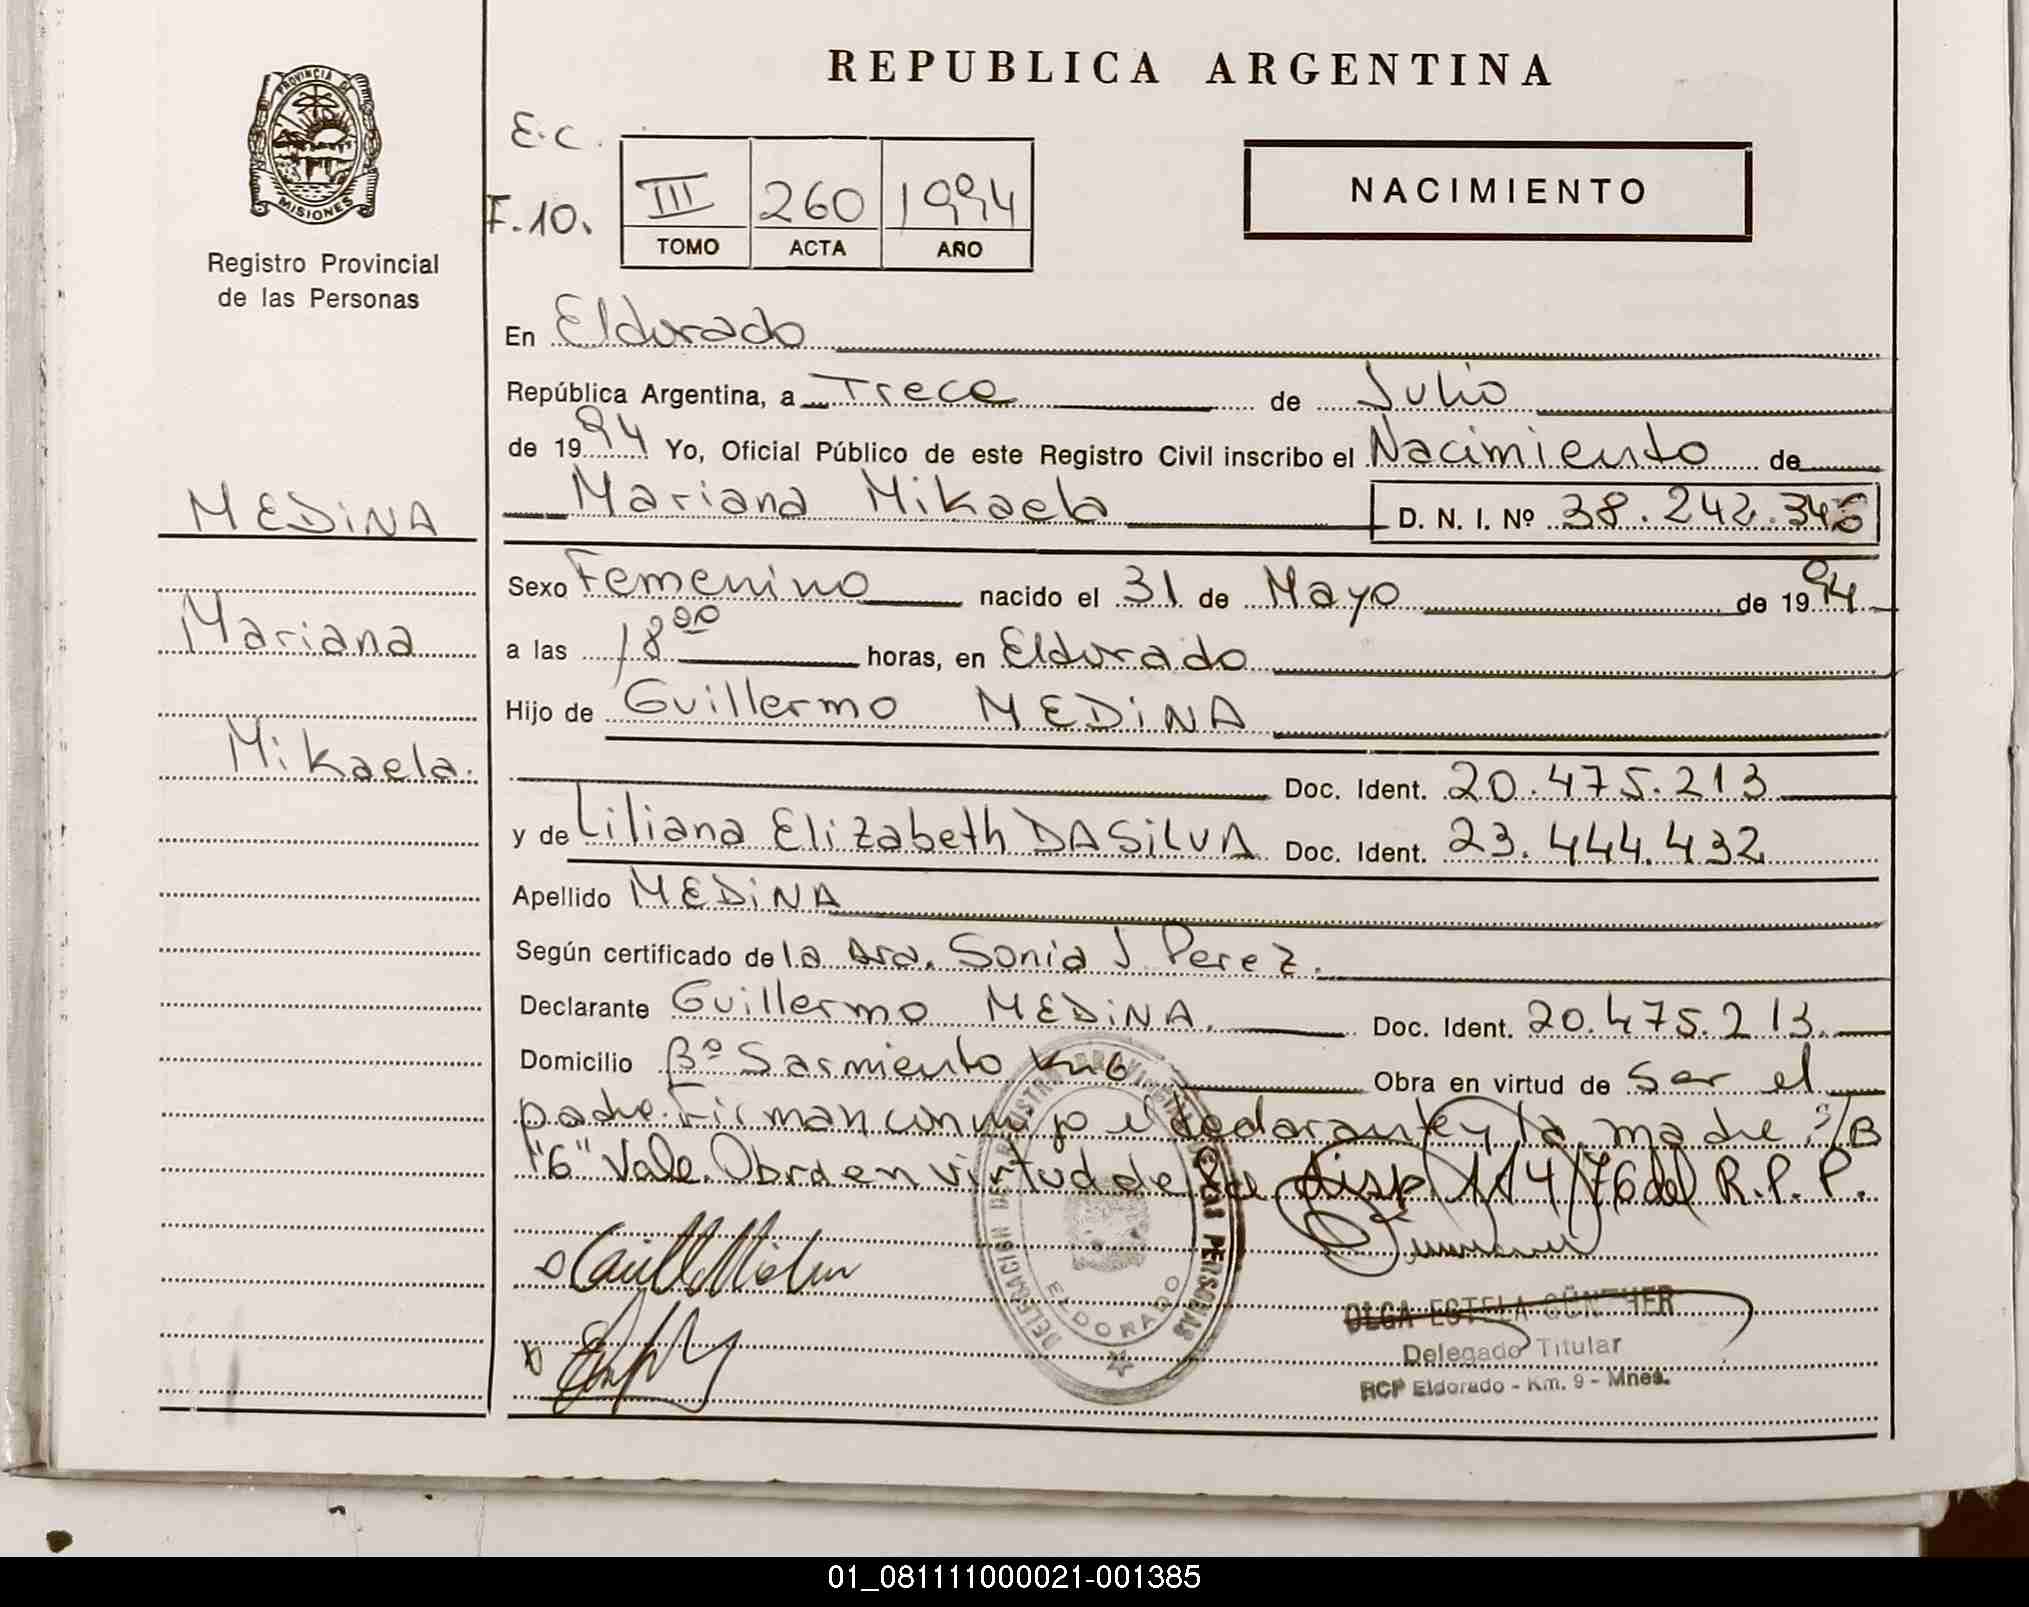 REPUBLICA ARGENTINA
PROVINCIA DE
MISIONES
Registro Provincial
de las Personas
E.C.
F.10.
III 260 1994
TOMO ACTA AÑO
NACIMIENTO
En Eldorado
República Argentina, a Trece de Julio
de 1994 Yo, Oficial Público de este Registro Civil inscribo el Nacimiento de
Mariana Mikaela D. N. I. Nº 38.242.346
MEDINA
Mariana
Mikaela.
Sexo Femenino nacido el 31 de Mayo de 1994
a las 18 00 horas, en Eldorado
Hijo de Guillermo MEDINA
Doc. Ident. 20.475.213
y de Liliana Elizabeth DASILVA Doc. Ident. 23.444.432
Apellido MEDINA
Según certificado de la Dra. Sonia J Perez.
Declarante Guillermo MEDINA. Doc. Ident. 20.475.213.
Domicilio Bº Sarmiento Km 6 Obra en virtud de ser el
padre. Firman conmigo el declarante y la madre. S/B
"6" Vale. Obra en virtud de la disp. 114/76 del R.P.P.
DELEGACION DEL REGISTRO PROVINCIAL DE LAS PERSONAS
ELDORADO
OLGA ESTELA GÜNTHER
Delegado Titular
RCP Eldorado - Km. 9 - Mnes.
01_081111000021-001385